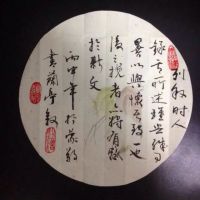 列叙时人
录其所述虽世殊事
異所以興懷其致一也
後之覽者亦將有感
於斯文
丙申年於
書蘭亭叙